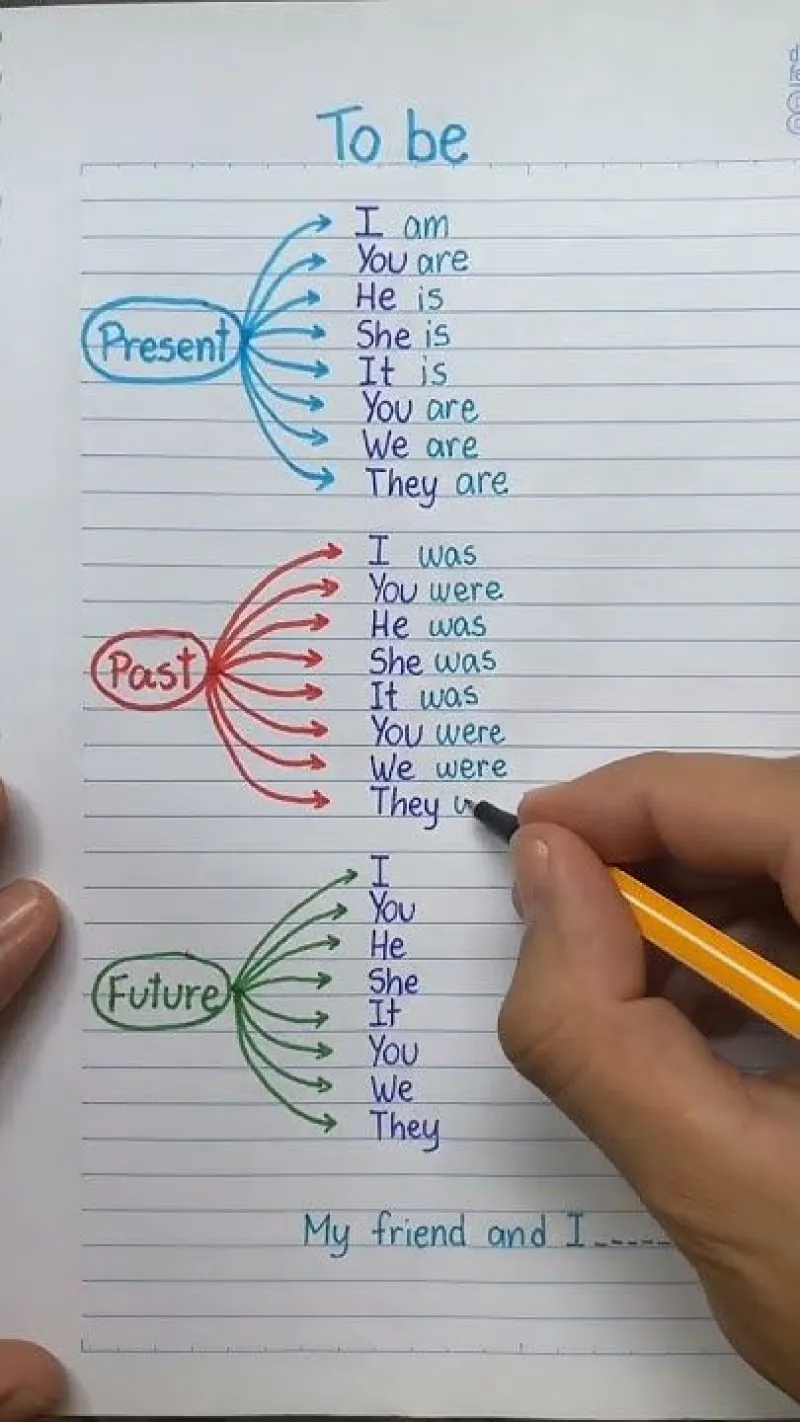 To be
Present
I am
You are
He is
She is
It is
You are
We are
They are
Past
I was
You were
He was
She was
It was
You were
We were
They
Future
I
You
He
She
It
You
We
They
My friend and I -----